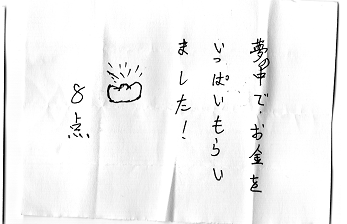 夢の中で、お金を
いっぱいもらい
ました！
8点